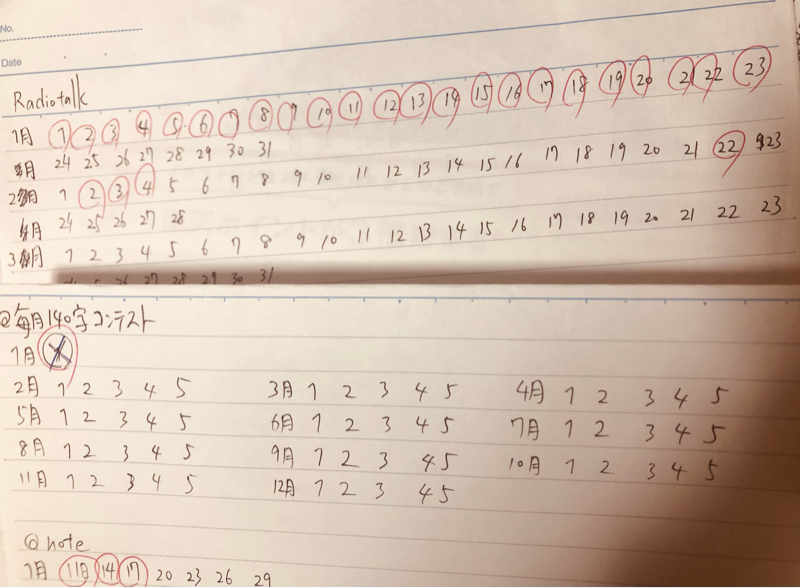 No.
Date
Radiotalk
1月 1 2 3 4 5 6 7 8 9 10 11 12 13 14 15 16 17 18 19 20 21 22 23
24 25 26 27 28 29 30 31
2月 1 2 3 4 5 6 7 8 9 10 11 12 13 14 15 16 17 18 19 20 21 22 23
24 25 26 27 28
3月 1 2 3 4 5 6 7 8 9 10 11 12 13 14 15 16 17 18 19 20 21 22 23
26 27 28 29 30 31
@毎月140字コンテスト
1月
2月 1 2 3 4 5 3月 1 2 3 4 5 4月 1 2 3 4 5
5月 1 2 3 4 5 6月 1 2 3 4 5 7月 1 2 3 4 5
8月 1 2 3 4 5 9月 1 2 3 4 5 10月 1 2 3 4 5
11月 1 2 3 4 5 12月 1 2 3 4 5
@note
1月 11日 14 17 20 23 26 29